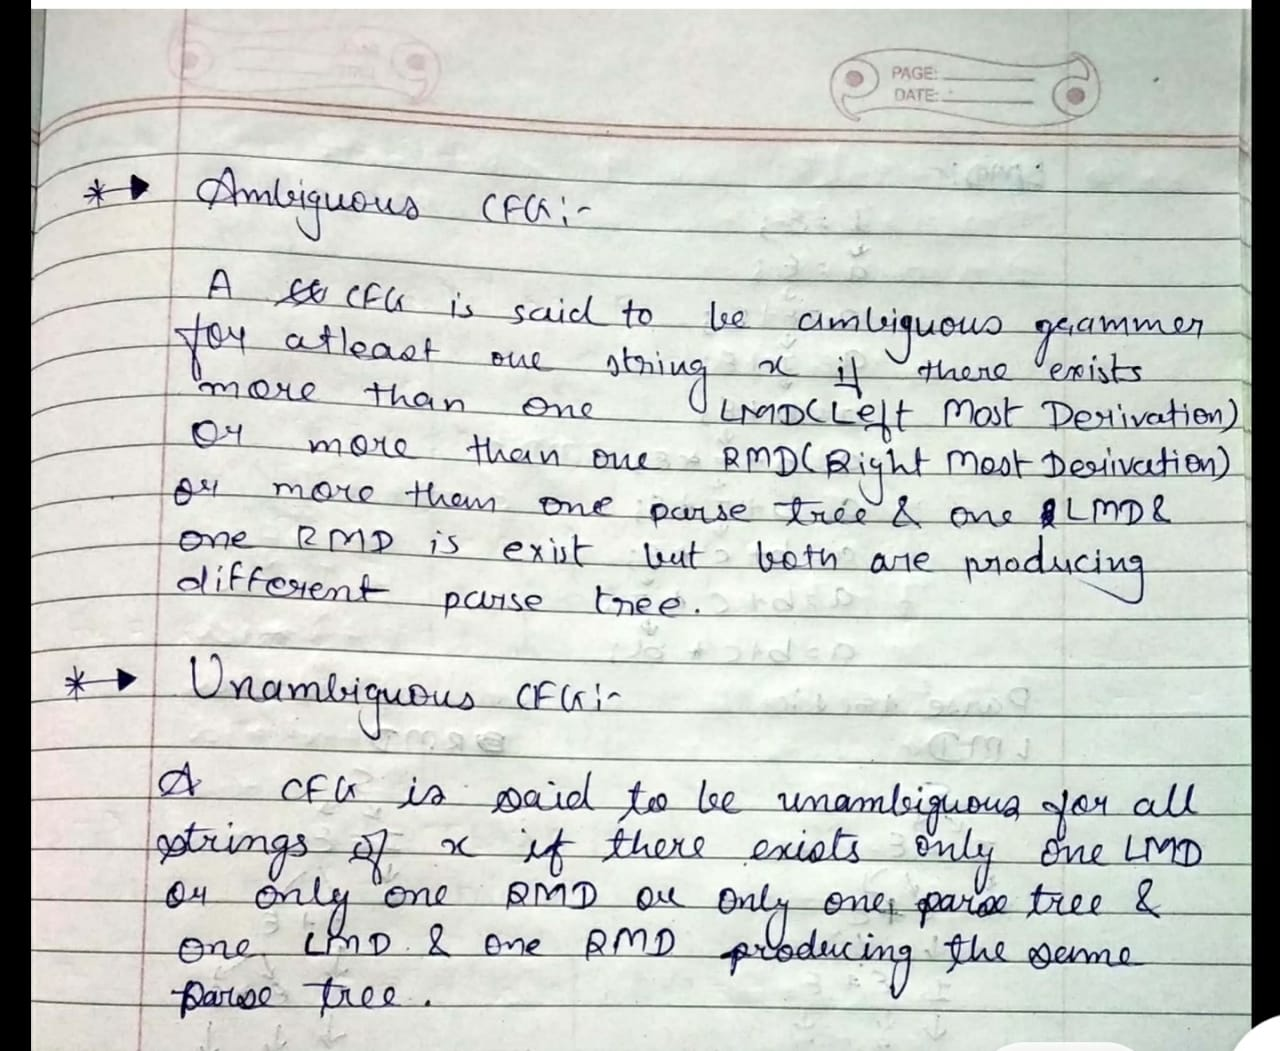 PAGE:
DATE:
*→ Ambiguous CFG :-
A CFG is said to be ambiguous grammer
for atleast one string x if there exists
more than one LMD(Left Most Derivation)
or more than one RMD(Right Most Derivation)
or more them one parse tree & one LMD &
one RMD is exist but both are producing
different parse tree.
*→ Unambiguous CFG :-
A CFG is said too be unambiguous for all
strings of x if there exists only one LMD
or only one RMD or only one parse tree &
one LMD & one RMD producing the same
parse tree.